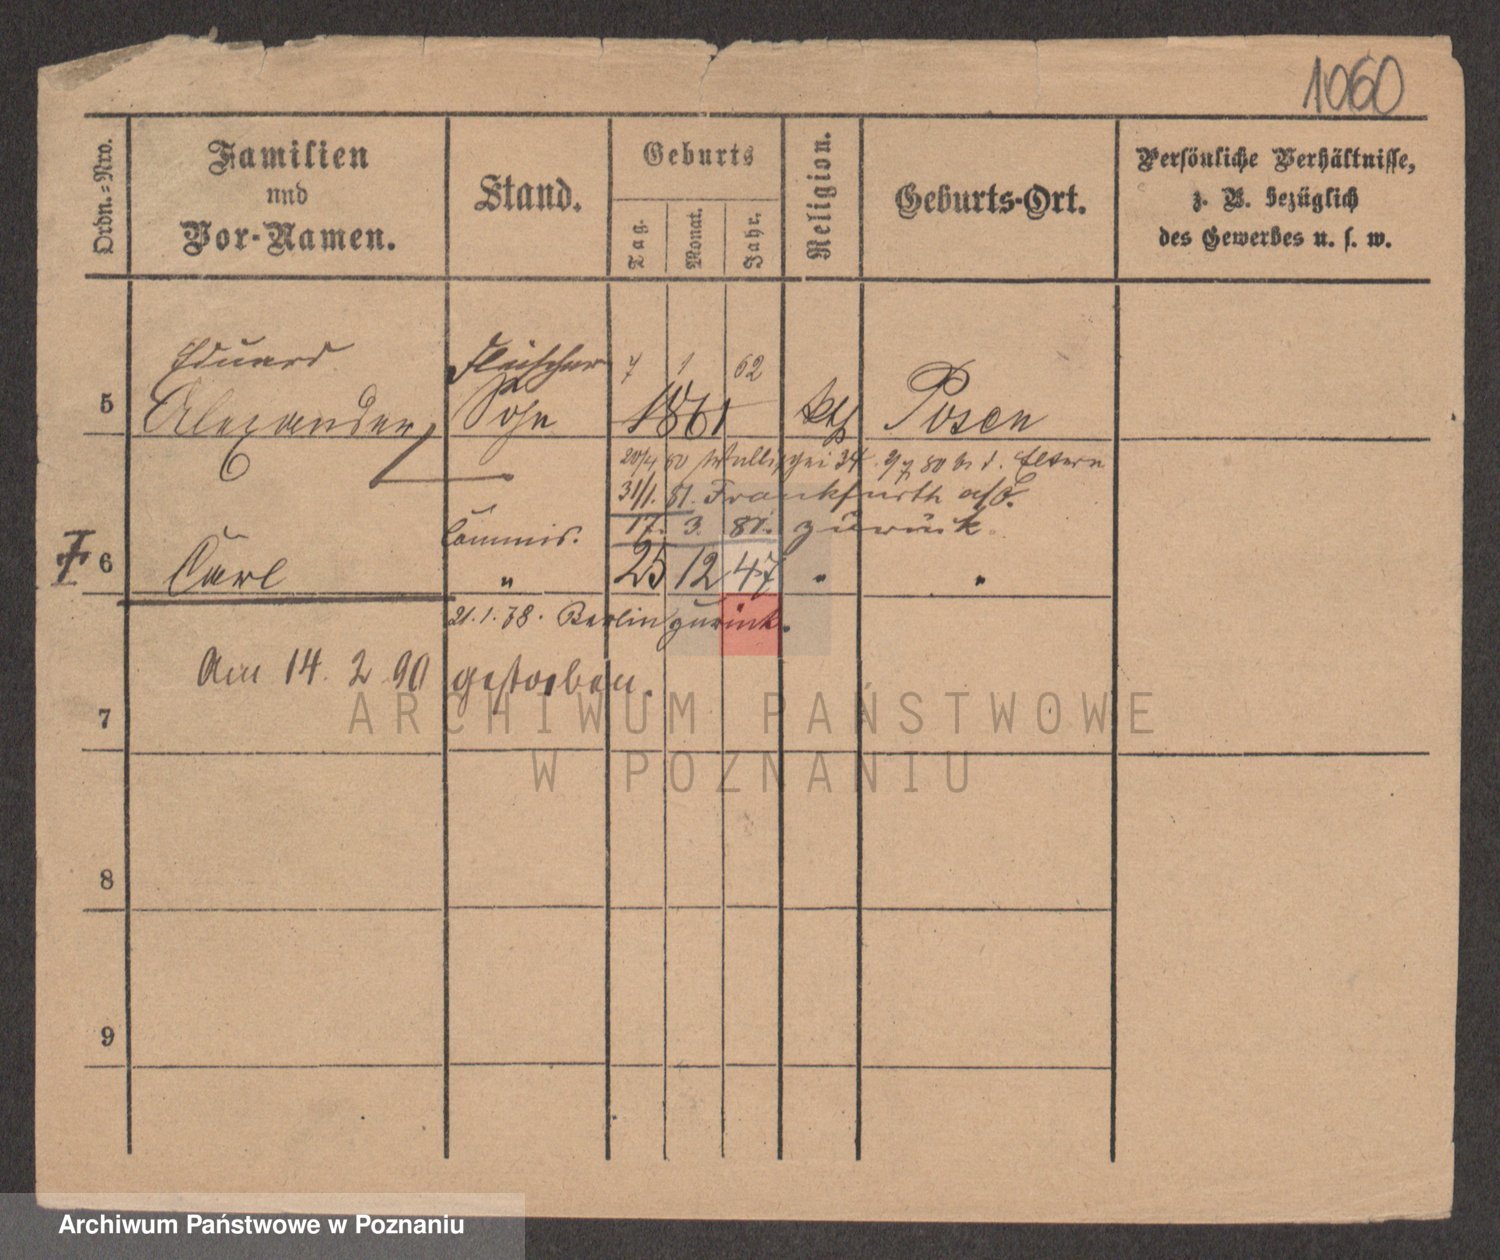 1060
Ordn.=Nro.
Familien
und
Vor-Namen.
Stand.
Geburts
Tag.
Monat.
Jahr.
Religion.
Geburts-Ort.
Persönliche Verhältnisse,
z. B. bezüglich
des Gewerbes u. s. w.
Eduard Fleischer 7 1 62
5 Alexander Sohn 1861 kth Posen
80 Wallischei 34. 9/7 80 b. d. Eltern
31/1. 81. Frankfurth a/O.
17. 3. 81. zurück.
Commis.
6 Carl " 25 12 47 " "
21.1.78. Berlin zurück.
Am 14. 2 90 gestorben.
7
ARCHIWUM PAŃSTWOWE
W POZNANIU
8
9
Archiwum Państwowe w Poznaniu